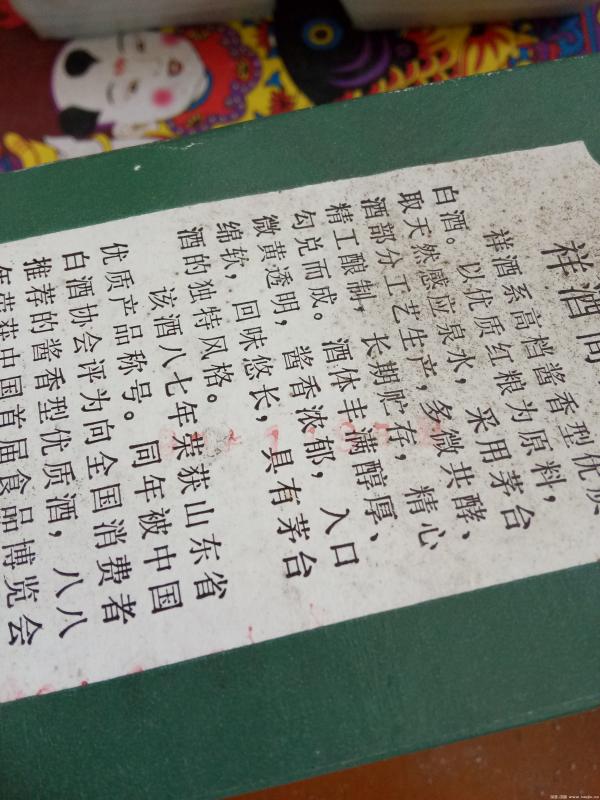 祥酒简
祥酒系高档酱香型优质
白酒。以优质红粮为原料，
取天然感应泉水，采用茅台
酒部分工艺生产，多微共酵、
精工酿制，长期贮存，精心
勾兑而成。酒体丰满醇厚、
微黄透明，酱香浓郁，入口
绵软，回味悠长，具有茅台
酒的独特风格。
该酒八七年荣获山东省
优质产品称号。同年被中国
白酒协会评为向全国消费者
推荐的酱香型优质酒，八八
年荣获中国首届食品博览会